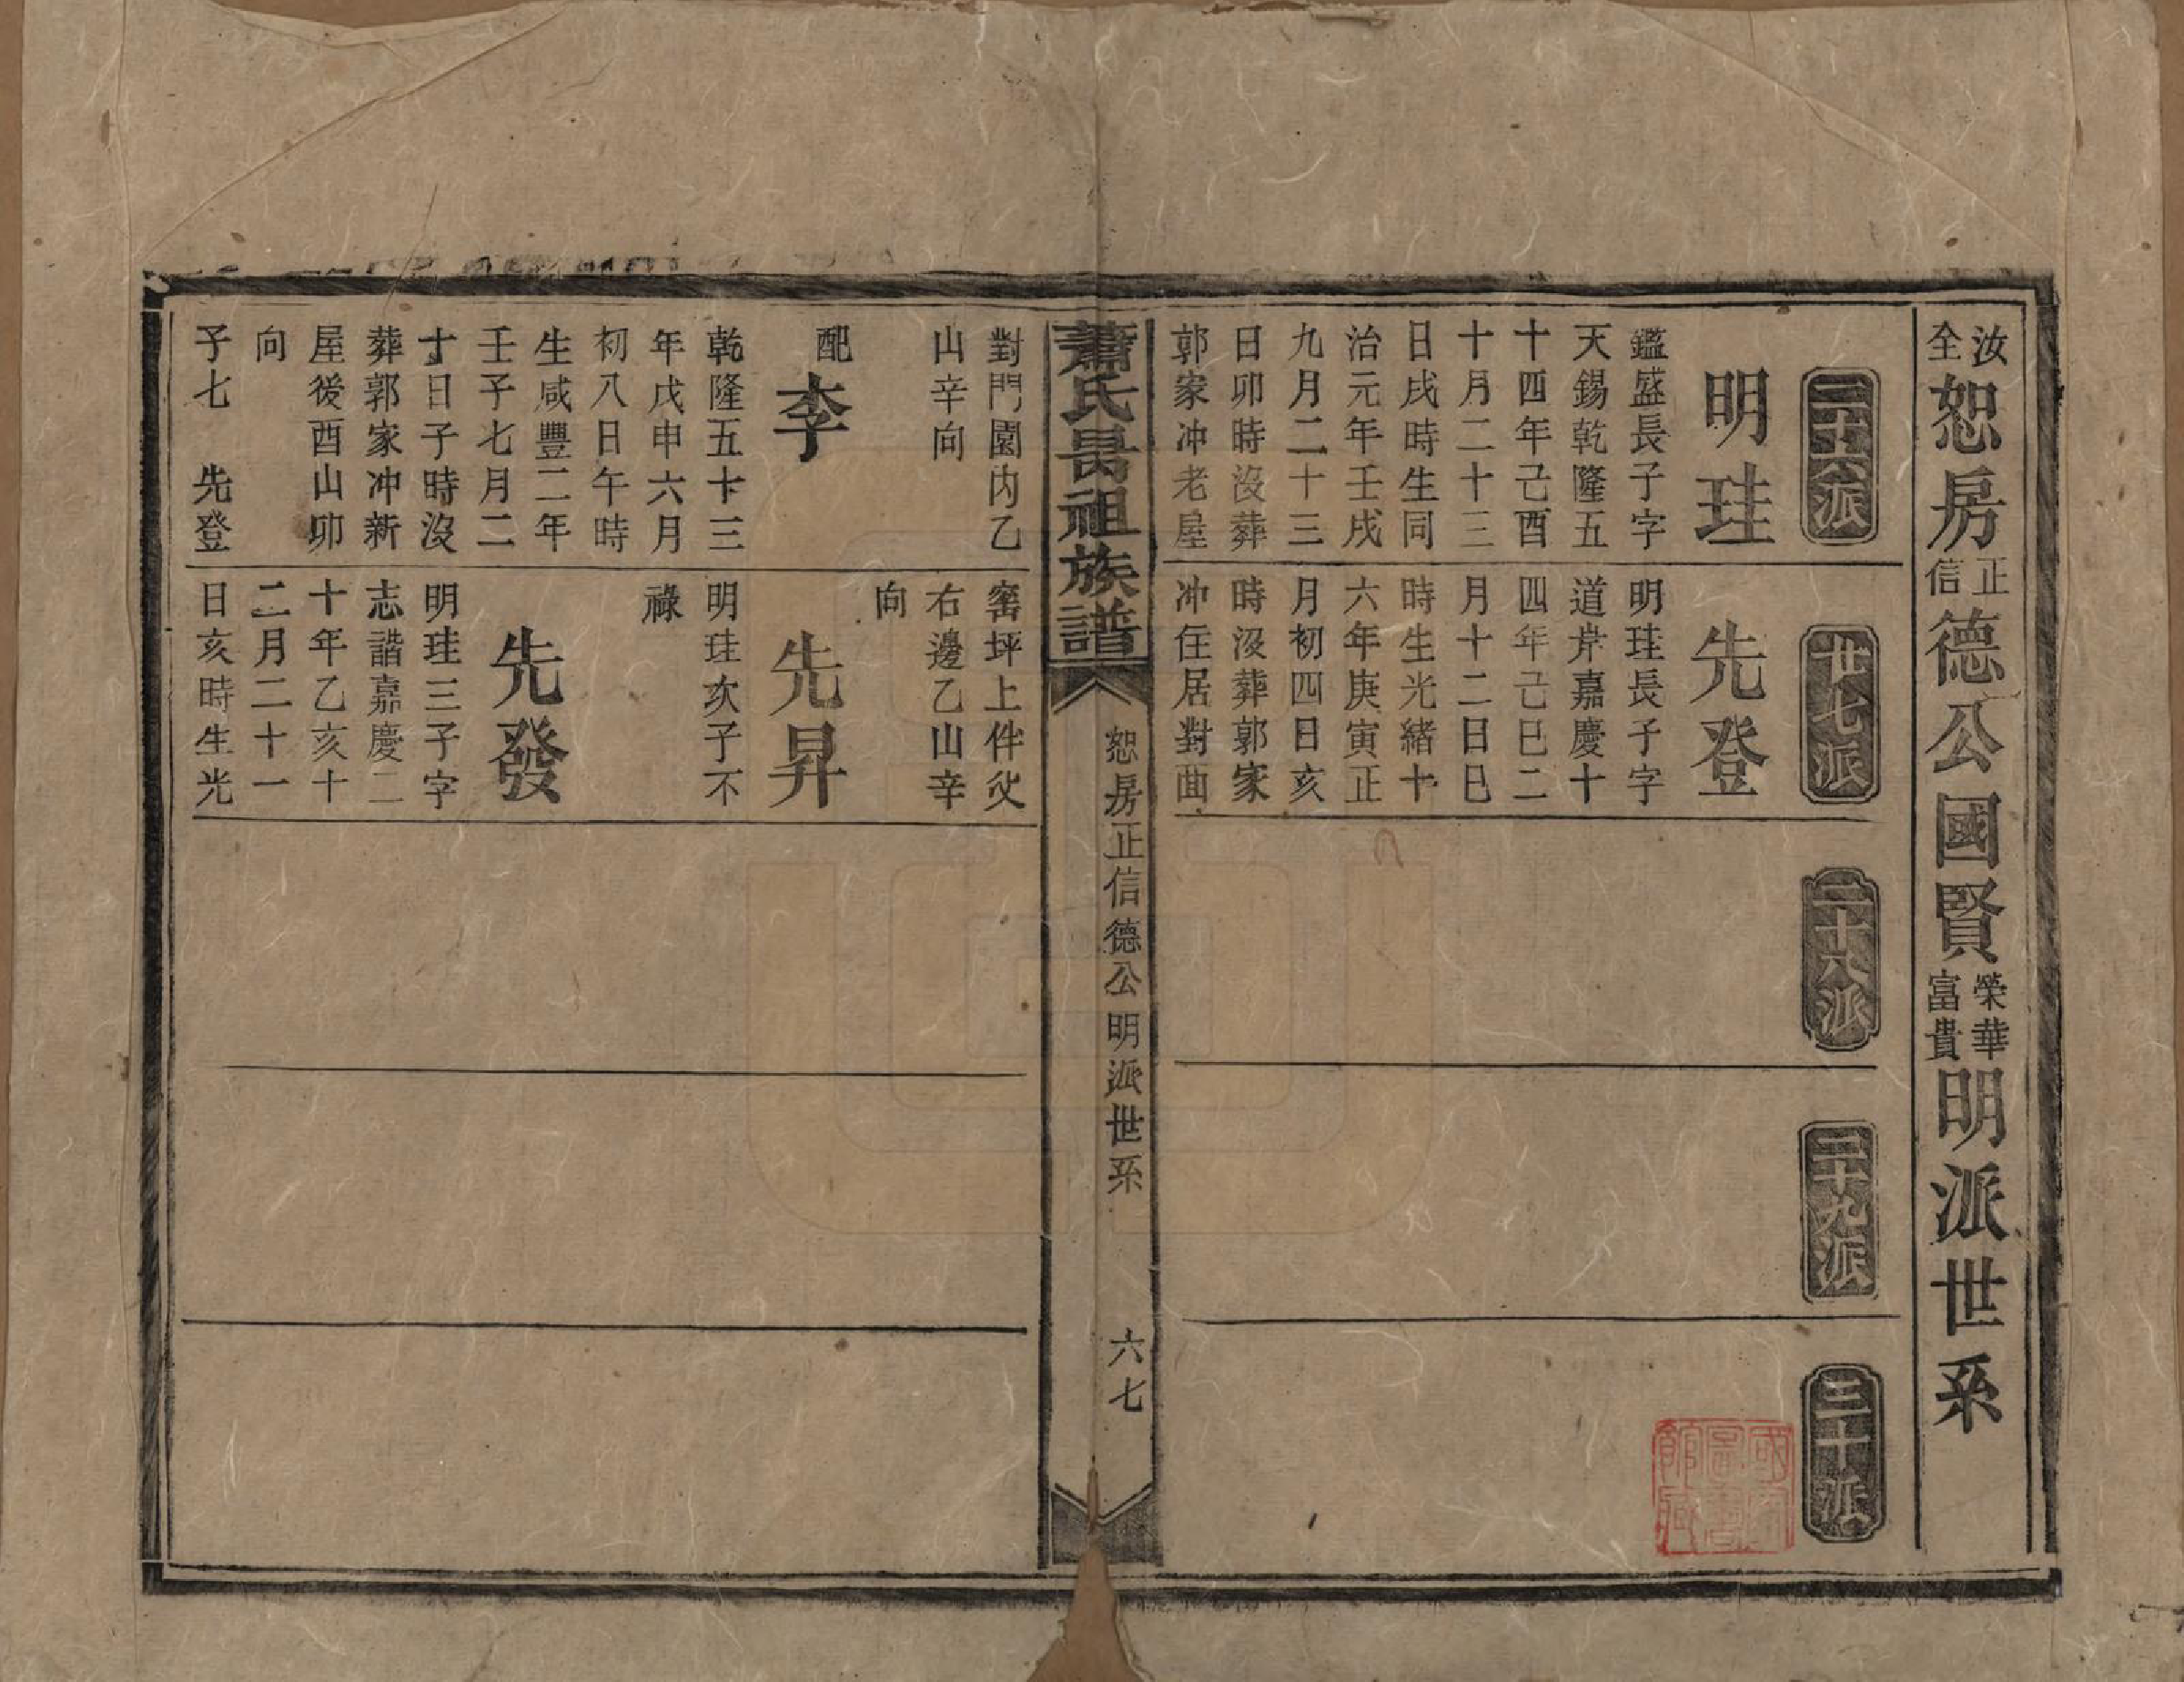 汝全恕房正信德公國賢榮華富貴明派世系
二十六派
明珪
鑑盛長子字
天錫乾隆五
十四年己酉
十月二十三
日戌時生同
治元年壬戌
九月二十三
日卯時沒葬
郭家冲老屋
對門園內乙
山辛向
配李
乾隆五十三
年戊申六月
初八日午時
生咸豐二年
壬子七月二
十日子時沒
葬郭家冲新
屋後酉山卯
向
子七 先登
廿七派
先登
明珪長子字
道岸嘉慶十
四年己巳二
月十二日巳
時生光緒十
六年庚寅正
月初四日亥
時沒葬郭家
冲住居對面
窰坪上伴父
右邊乙山辛
向
先昇
明珪次子不
祿
先發
明珪三子字
志諧嘉慶二
十年乙亥十
二月二十一
日亥時生光
二十八派
二十九派
三十派
蕭氏昺祖族譜
恕房正信德公明派世系
六七
國家圖書館藏